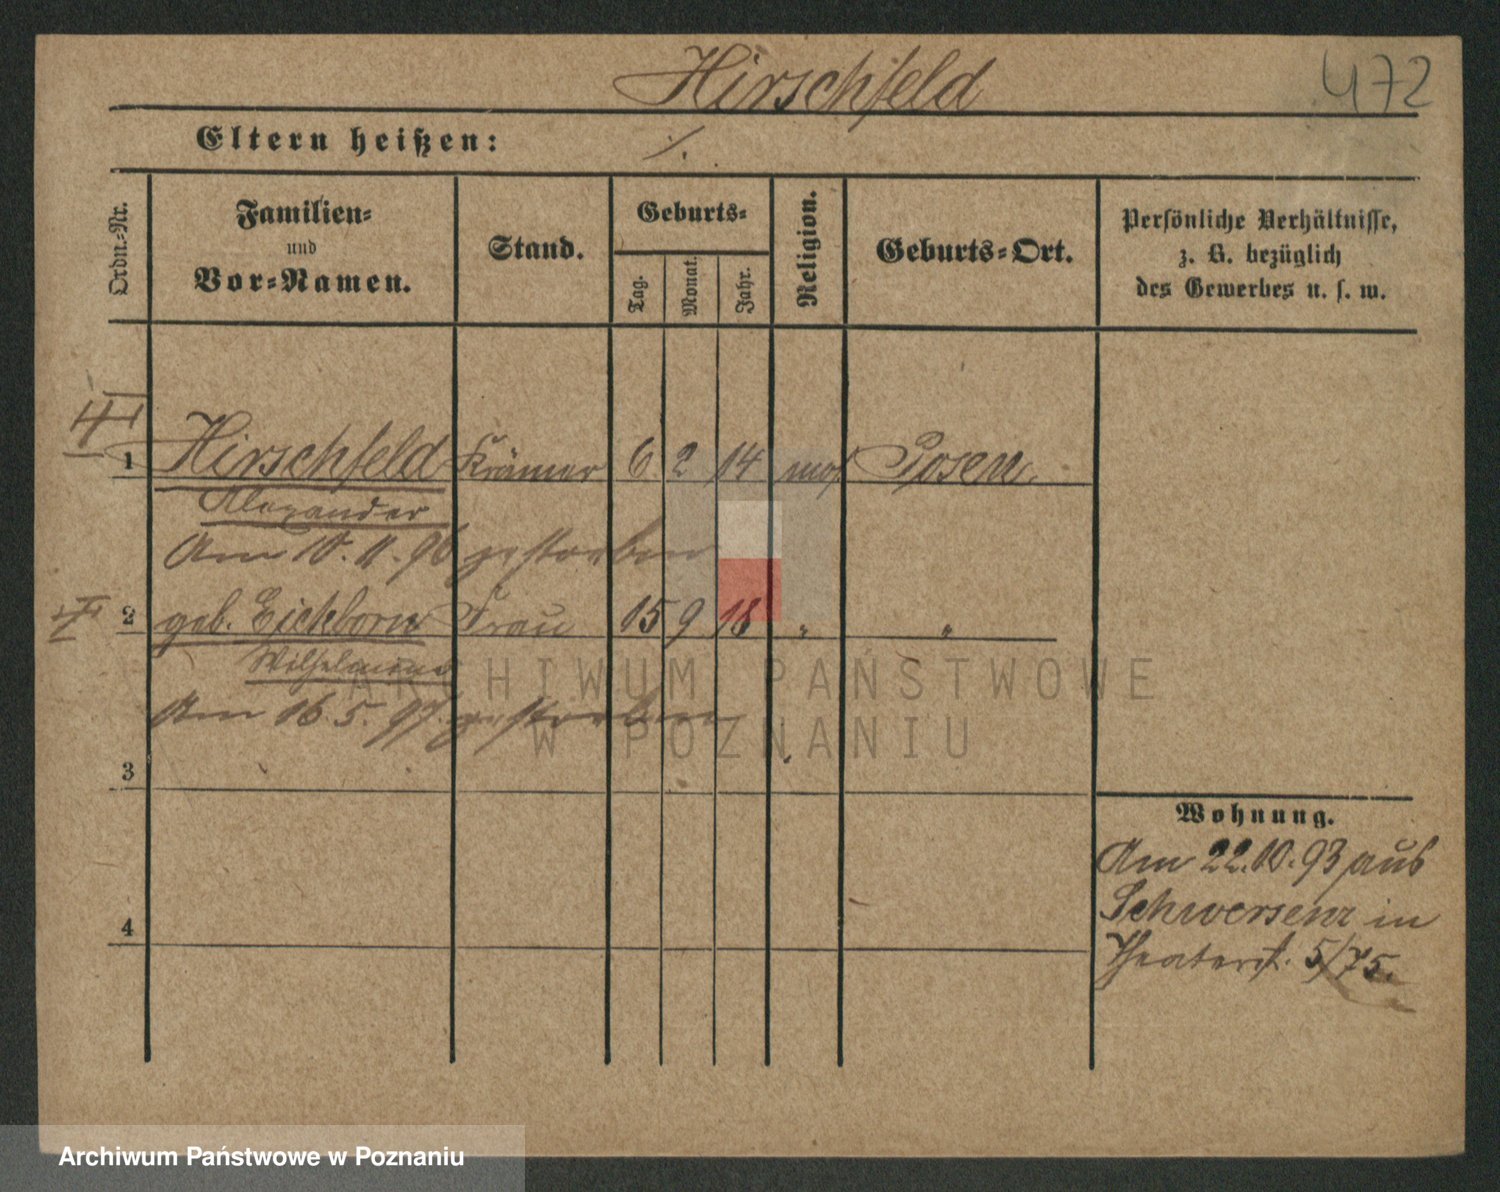 Hirschfeld
472
Eltern heißen: ./.
Ordn.-Nr.
Familien-
und
Vor-Namen.
Stand.
Geburts-
Tag.
Monat.
Jahr.
Religion.
Geburts-Ort.
Persönliche Verhältnisse,
z. B. bezüglich
des Gewerbes u. s. w.
1 Hirschfeld Krämer 6 2 14 mos. Posen.
Alexander
Am 10. 11. 96 gestorben
2 geb. Eichborn Frau 15 9 18 " "
Wilhelmine
Am 16 5. 97. gestorben
3
4
Wohnung.
Am 22.10.93 aus
Schwersenz in
Theaterst. 5/75.
ARCHIWUM PAŃSTWOWE
W POZNANIU
Archiwum Państwowe w Poznaniu